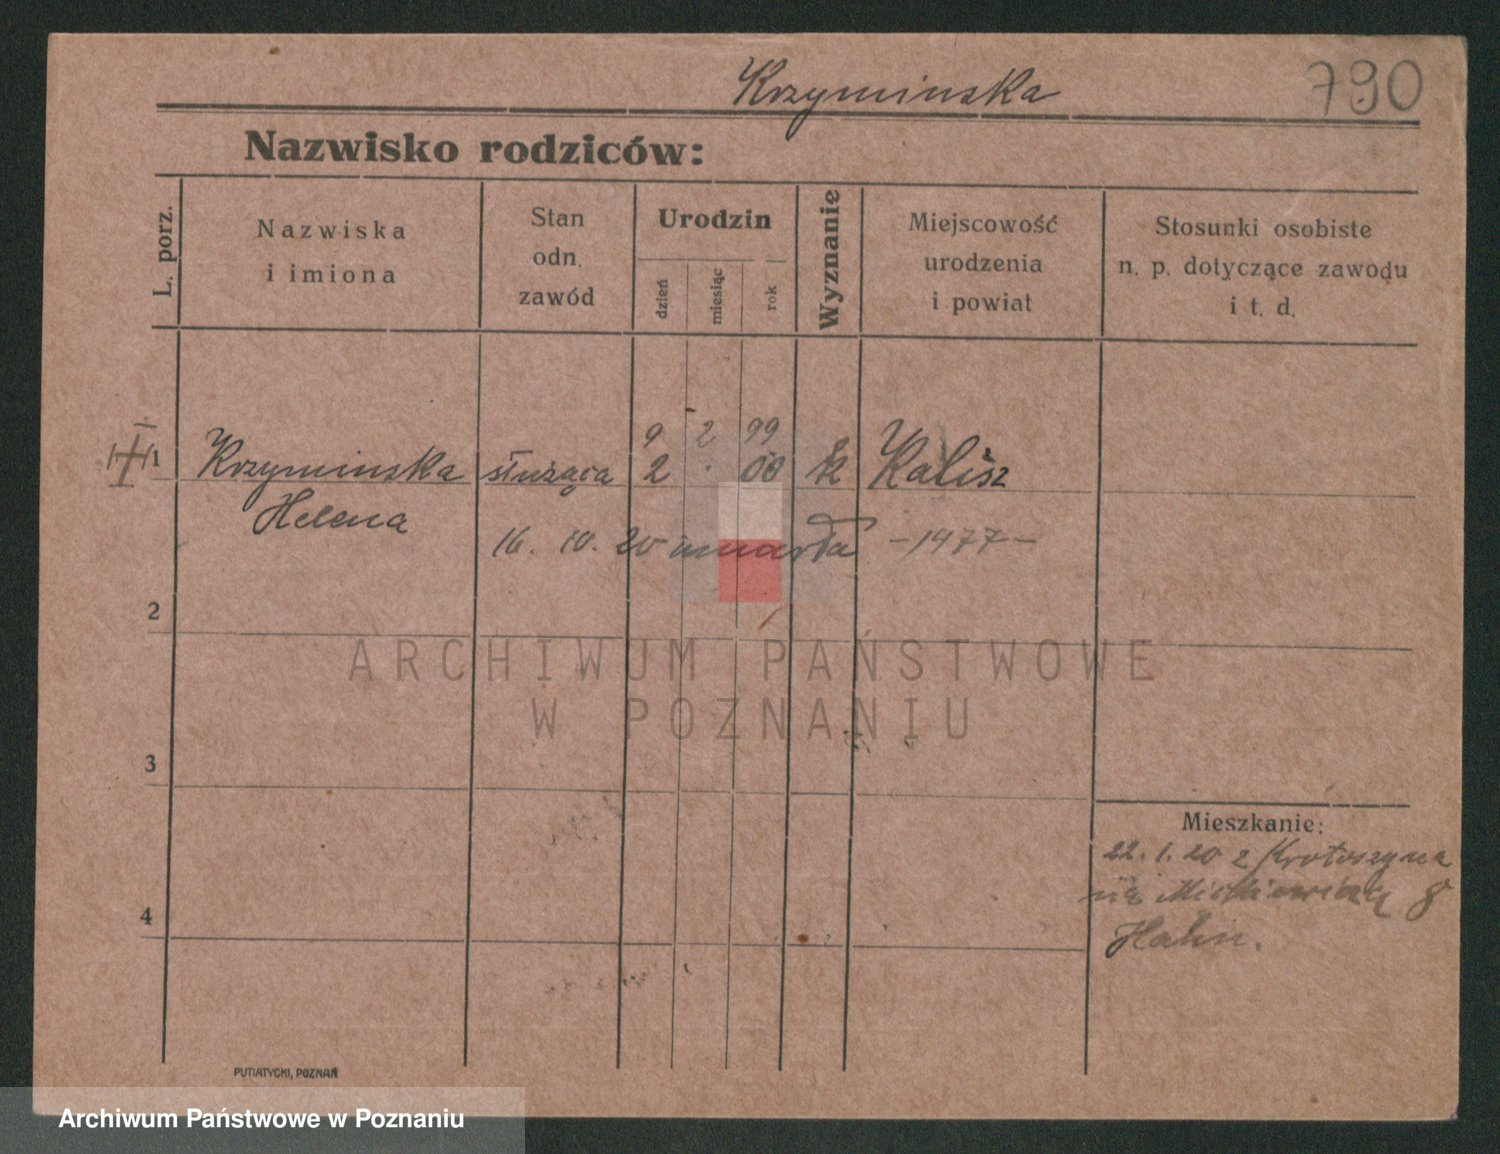 Krzyminska
790
Nazwisko rodziców:
L. porz.
Nazwiska
i imiona
Stan
odn.
zawód
Urodzin
dzień
miesiąc
rok
Wyznanie
Miejscowość
urodzenia
i powiat
Stosunki osobiste
n. p. dotyczące zawodu
i t. d.
9 2 99
1 Krzyminska służąca 2 . 00 k Kalisz
Helena
16. 10. 20 umarła -1477-
2
ARCHIWUM PAŃSTWOWE
W POZNANIU
3
Mieszkanie:
22. 1. 20 z Krotoszyna
Mickiewicza 8
Hahn.
4
PUTIATYCKI, POZNAŃ
Archiwum Państwowe w Poznaniu